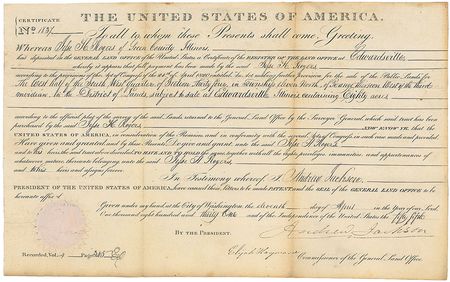 THE UNITED STATES OF AMERICA.
CERTIFICATE
No. 1837
To all to whom these Presents shall come, Greeting:
WHEREAS Jesse H. Rogers of Green County, Illinois,
has deposited in the GENERAL LAND OFFICE of the United States, a Certificate of the REGISTER OF THE LAND OFFICE at Edwardsville
whereby it appears that full payment has been made by the said Jesse H. Rogers
according to the provisions of the Act of Congress of the 24th of April, 1820, entitled "An act making further provision for the sale of the Public Lands," for
The West half of the South West Quarter of Section Thirty five, in Township Eleven North, of Range Thirteen West of the Third
meridian, In the District of Lands subject to sale at Edwardsville Illinois, containing Eighty acres
according to the official plat of the survey of the said Lands, returned to the General Land Office by the Surveyor General, which said tract has been
purchased by the said Jesse H. Rogers NOW KNOW YE, that the
UNITED STATES OF AMERICA, in consideration of the Premises, and in conformity with the several acts of Congress, in such case made and provided,
Have given and granted, and by these Presents, Do give and grant, unto the said Jesse H. Rogers
and to his heirs, the said tract above described: TO HAVE AND TO HOLD the same, together with all the rights, privileges, immunities, and appurtenances of
whatsoever nature, thereunto belonging, unto the said Jesse H. Rogers
and to his heirs and assigns forever.
In Testimony whereof, I, Andrew Jackson
PRESIDENT OF THE UNITED STATES OF AMERICA, have caused these Letters to be made PATENT, and the SEAL of the GENERAL LAND OFFICE to be
hereunto affixed.
Given under my hand at the City of Washington, the eleventh day of April in the Year of our Lord
one thousand eight hundred and thirty One and of the Independence of the United States the fifty fifth
BY THE PRESIDENT,
Andrew Jackson
Elijah Hayward Commissioner of the General Land Office.
Recorded, Vol. Page